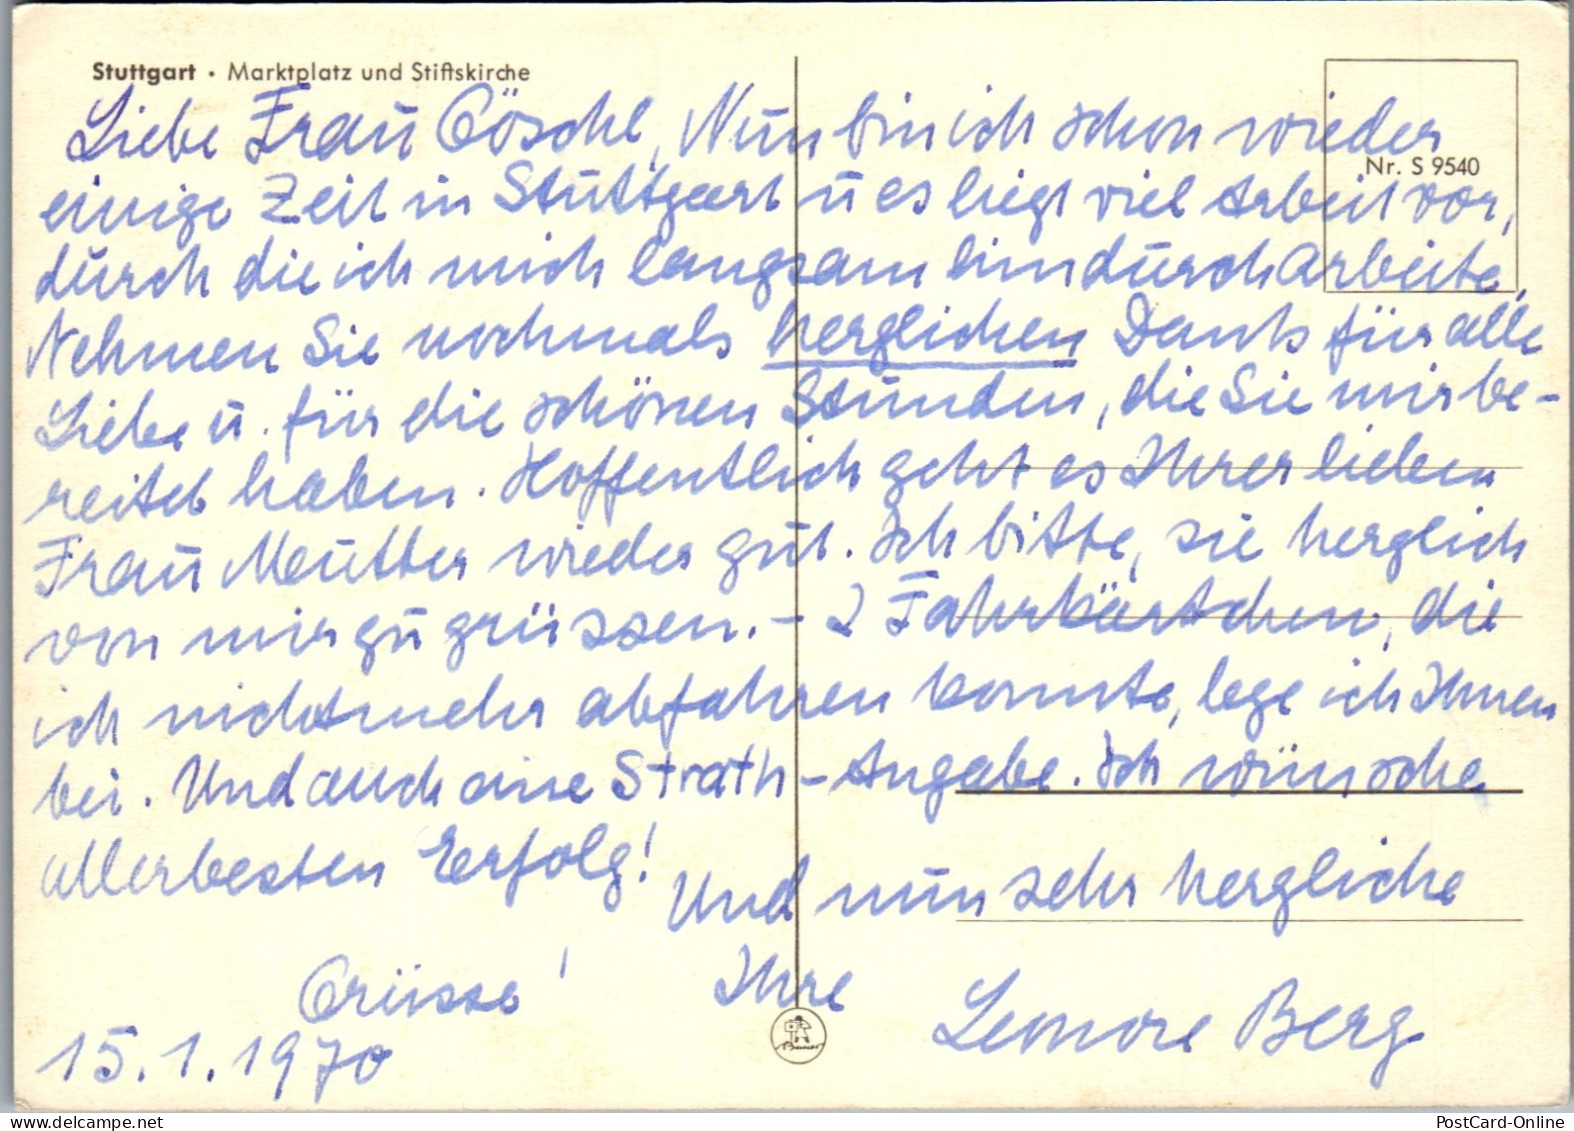 Stuttgart · Marktplatz und Stiftskirche
Liebe Frau Göschl, Nun bin ich schon wieder
Nr. S 9540
einige Zeit in Stuttgart u es liegt viel Arbeit vor,
durch die ich mich langsam hindurcharbeite.
Nehmen Sie nochmals herzlichen Dank für alle
Liebe u. für die schönen Stunden, die Sie mir be-
reitet haben. Hoffentlich geht es Ihrer lieben
Frau Mutter wieder gut. Ich bitte, sie herzlich
von mir zu grüssen. – 2 Fahrkärtchen, die
ich nicht mehr abfahren konnte, lege ich Ihnen
bei. Und auch eine Strath-Angabe. Ich wünsche
allerbesten Erfolg!
Und nun sehr herzliche
Grüsse! Ihre
Leonore Berg
15.1.1970
PostCard-Online